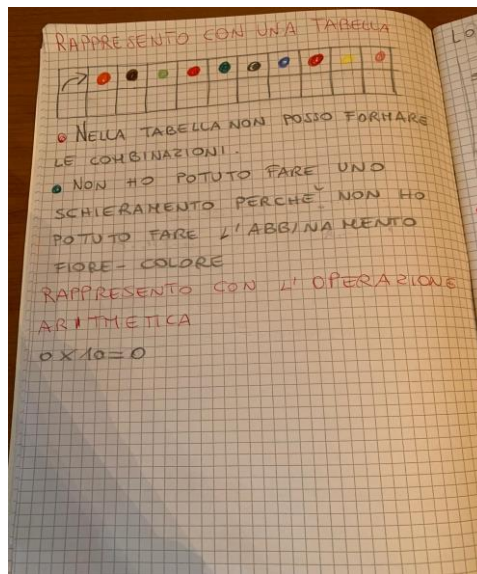 RAPPRESENTO CON UNA TABELLA
NELLA TABELLA NON POSSO FORMARE
LE COMBINAZIONI.
NON HO POTUTO FARE UNO
SCHIERAMENTO PERCHÈ NON HO
POTUTO FARE L'ABBINAMENTO
FIORE-COLORE
RAPPRESENTO CON L'OPERAZIONE
ARITMETICA
0×10=0
LO